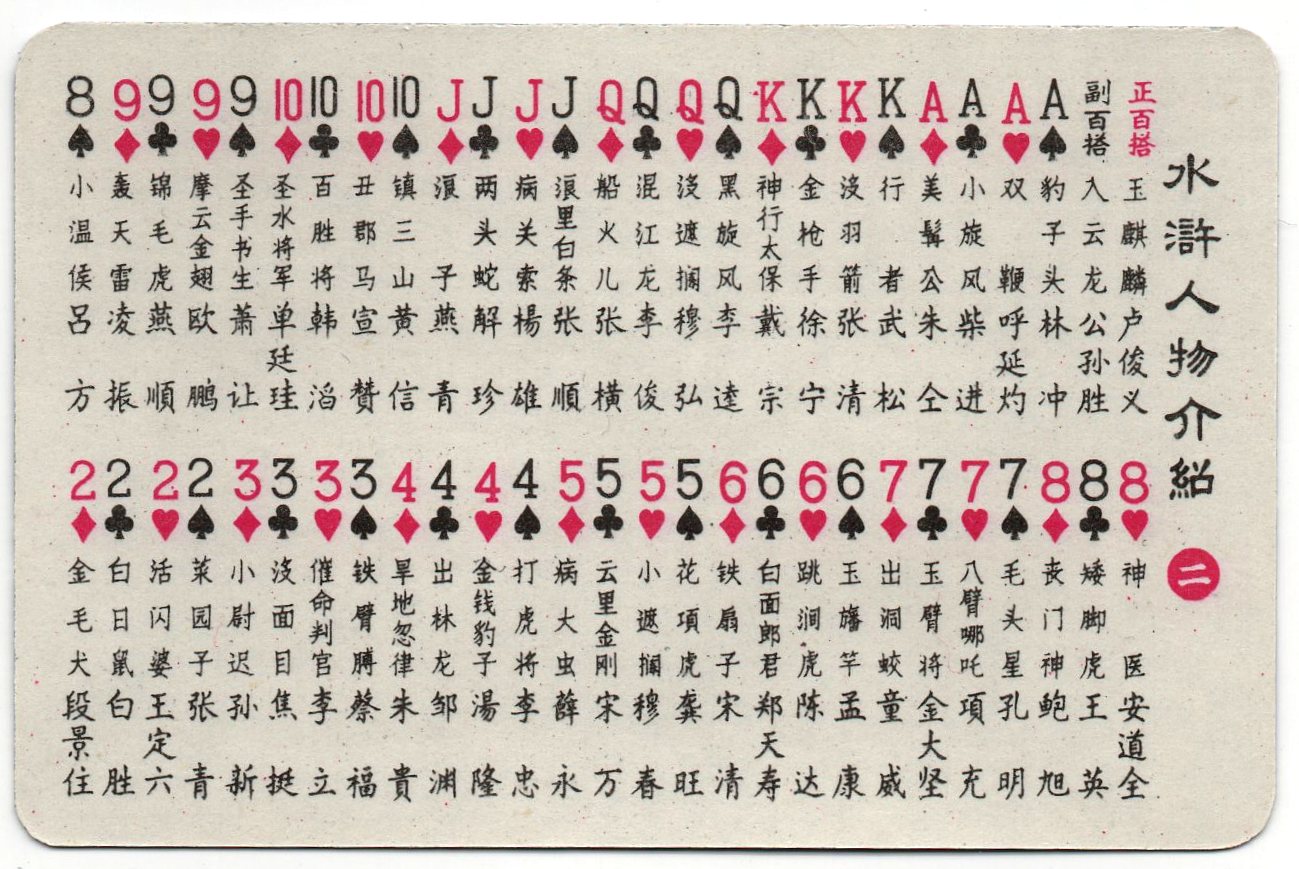 水滸人物介紹 二
正百搭 玉麒麟卢俊义
副百搭 入云龙公孙胜
A♠ 豹子头林冲
A♥ 双鞭呼延灼
A♣ 小旋风柴进
A♦ 美髯公朱仝
K♠ 行者武松
K♥ 没羽箭张清
K♣ 金枪手徐宁
K♦ 神行太保戴宗
Q♠ 黑旋风李逵
Q♥ 没遮攔穆弘
Q♣ 混江龙李俊
Q♦ 船火儿张横
J♠ 浪里白条张順
J♥ 病关索楊雄
J♣ 两头蛇解珍
J♦ 浪子燕青
10♠ 镇三山黄信
10♥ 丑郡马宣赞
10♣ 百胜将韩滔
10♦ 圣水将军单廷珪
9♠ 圣手书生萧让
9♥ 摩云金翅欧鹏
9♣ 锦毛虎燕順
9♦ 轰天雷凌振
8♠ 小温侯吕方
8♥ 神医安道全
8♣ 矮脚虎王英
8♦ 丧门神鲍旭
7♠ 毛头星孔明
7♥ 八臂哪吒項充
7♣ 玉臂将金大坚
7♦ 出洞蛟童威
6♠ 玉旛竿孟康
6♥ 跳涧虎陈达
6♣ 白面郎君郑天寿
6♦ 铁扇子宋清
5♠ 花項虎龚旺
5♥ 小遮攔穆春
5♣ 云里金刚宋万
5♦ 病大虫薛永
4♠ 打虎将李忠
4♥ 金钱豹子湯隆
4♣ 出林龙邹渊
4♦ 旱地忽律朱貴
3♠ 铁臂膊蔡福
3♥ 催命判官李立
3♣ 没面目焦挺
3♦ 小尉迟孙新
2♠ 菜园子张青
2♥ 活闪婆王定六
2♣ 白日鼠白胜
2♦ 金毛犬段景住